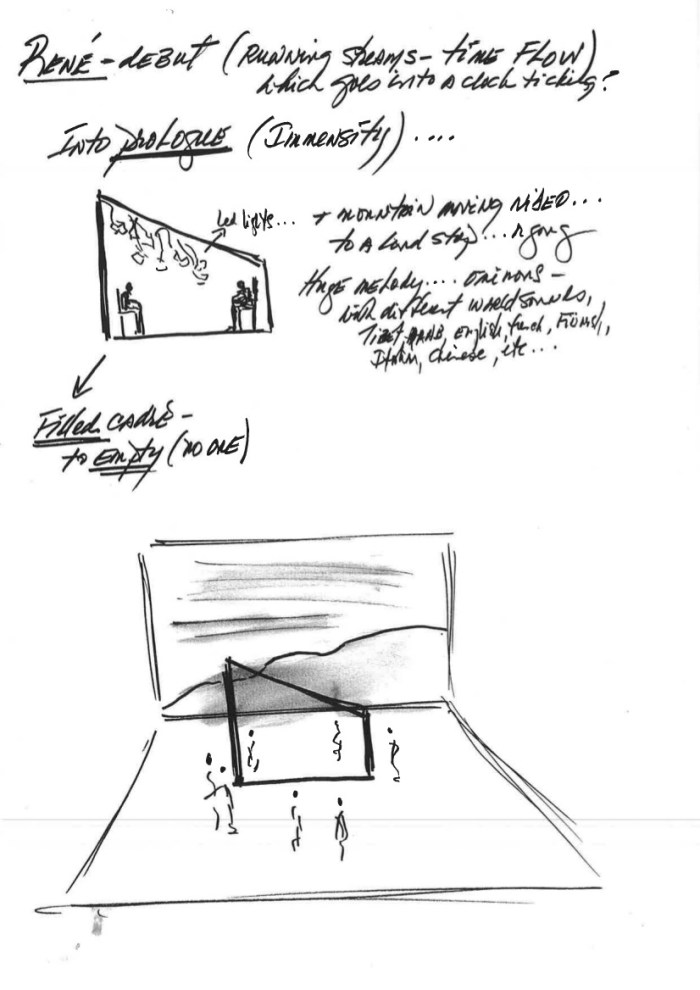 RENÉ - DEBUT (RUNNING STREAMS - TIME FLOW)
which goes into a clock ticking?
INTO PROLOGUE (Immensity) ....
Led lights...
+ MOUNTAIN MOVING VIDEO...
to A Land
Huge melody.... ominous -
with different world sounds,
Tibet, English, french,
Italian, Chinese, etc...
Filled CADRE -
to Empty (NO ONE)